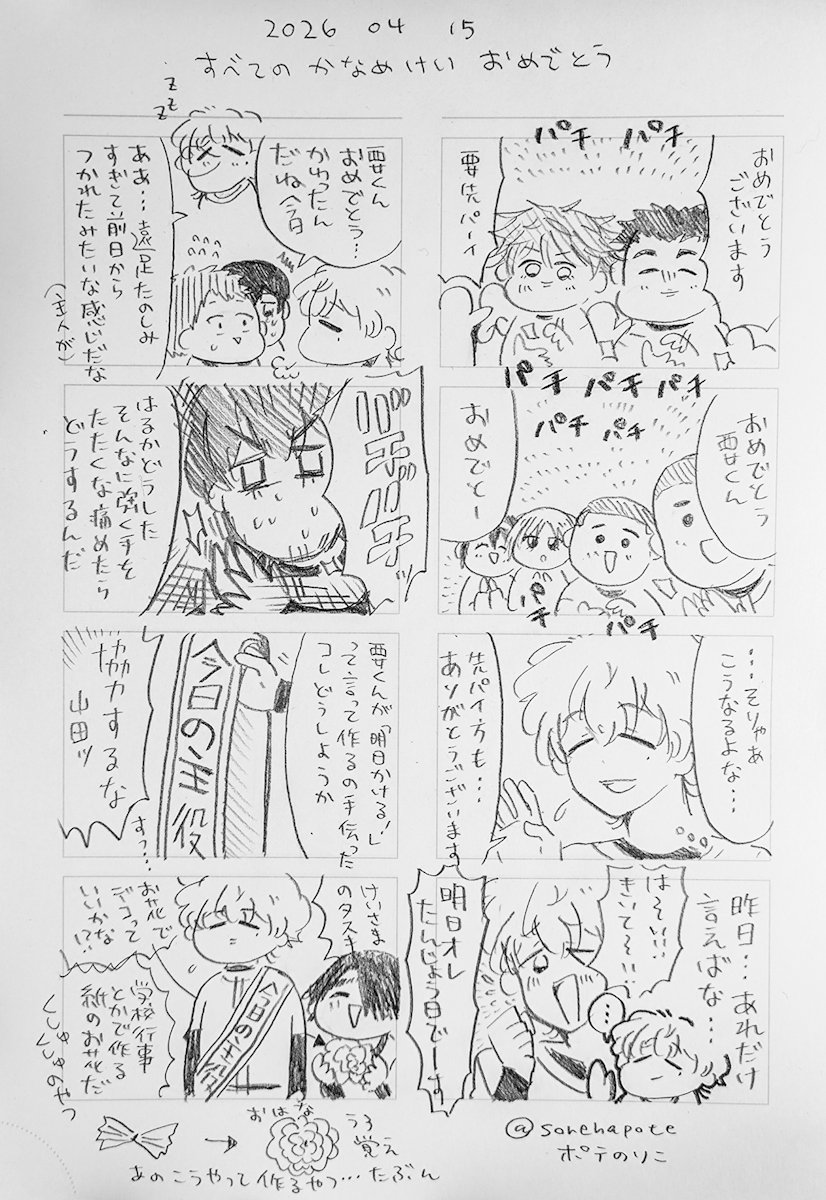 2026 04 15
すべての かなめけい おめでとう
パチ パチ
おめでとう
ございます
要先パーイ
パチ パチ パチ
パチ パチ
おめでとう
要くん
おめでとー
パチ
パチ
…そりゃあ
こうなるよな…
先パイ方も…
ありがとうございます
昨日…あれだけ
言えばな…
はそい…
きいてそい…
明日オレ
たんじょう日でーす
…
zzz
要くん
おめでとう…
かわったん
だね今日
ああ…遠足たのしみ
すぎて前日から
つかれたみたいな感じだな
(主人が)
バチバチッ
はるかどうした
そんなに強く手を
たたくな痛めたら
どうするんだ
要くんが「明日かける!」
って言って作るの手伝った
コレどうしようか
今日の主役
協力するな
山田ッ
すっ…
けいさま
のタスキ
お花で
デコって
いいかな
!?
今日の主役
学校行事
とかで作る
紙のお花だ
くしゅくしゅのやつ
おはな
うろ
覚え
あのこうやって作るやつ…たぶん
@sonehapote
ポテのりこ